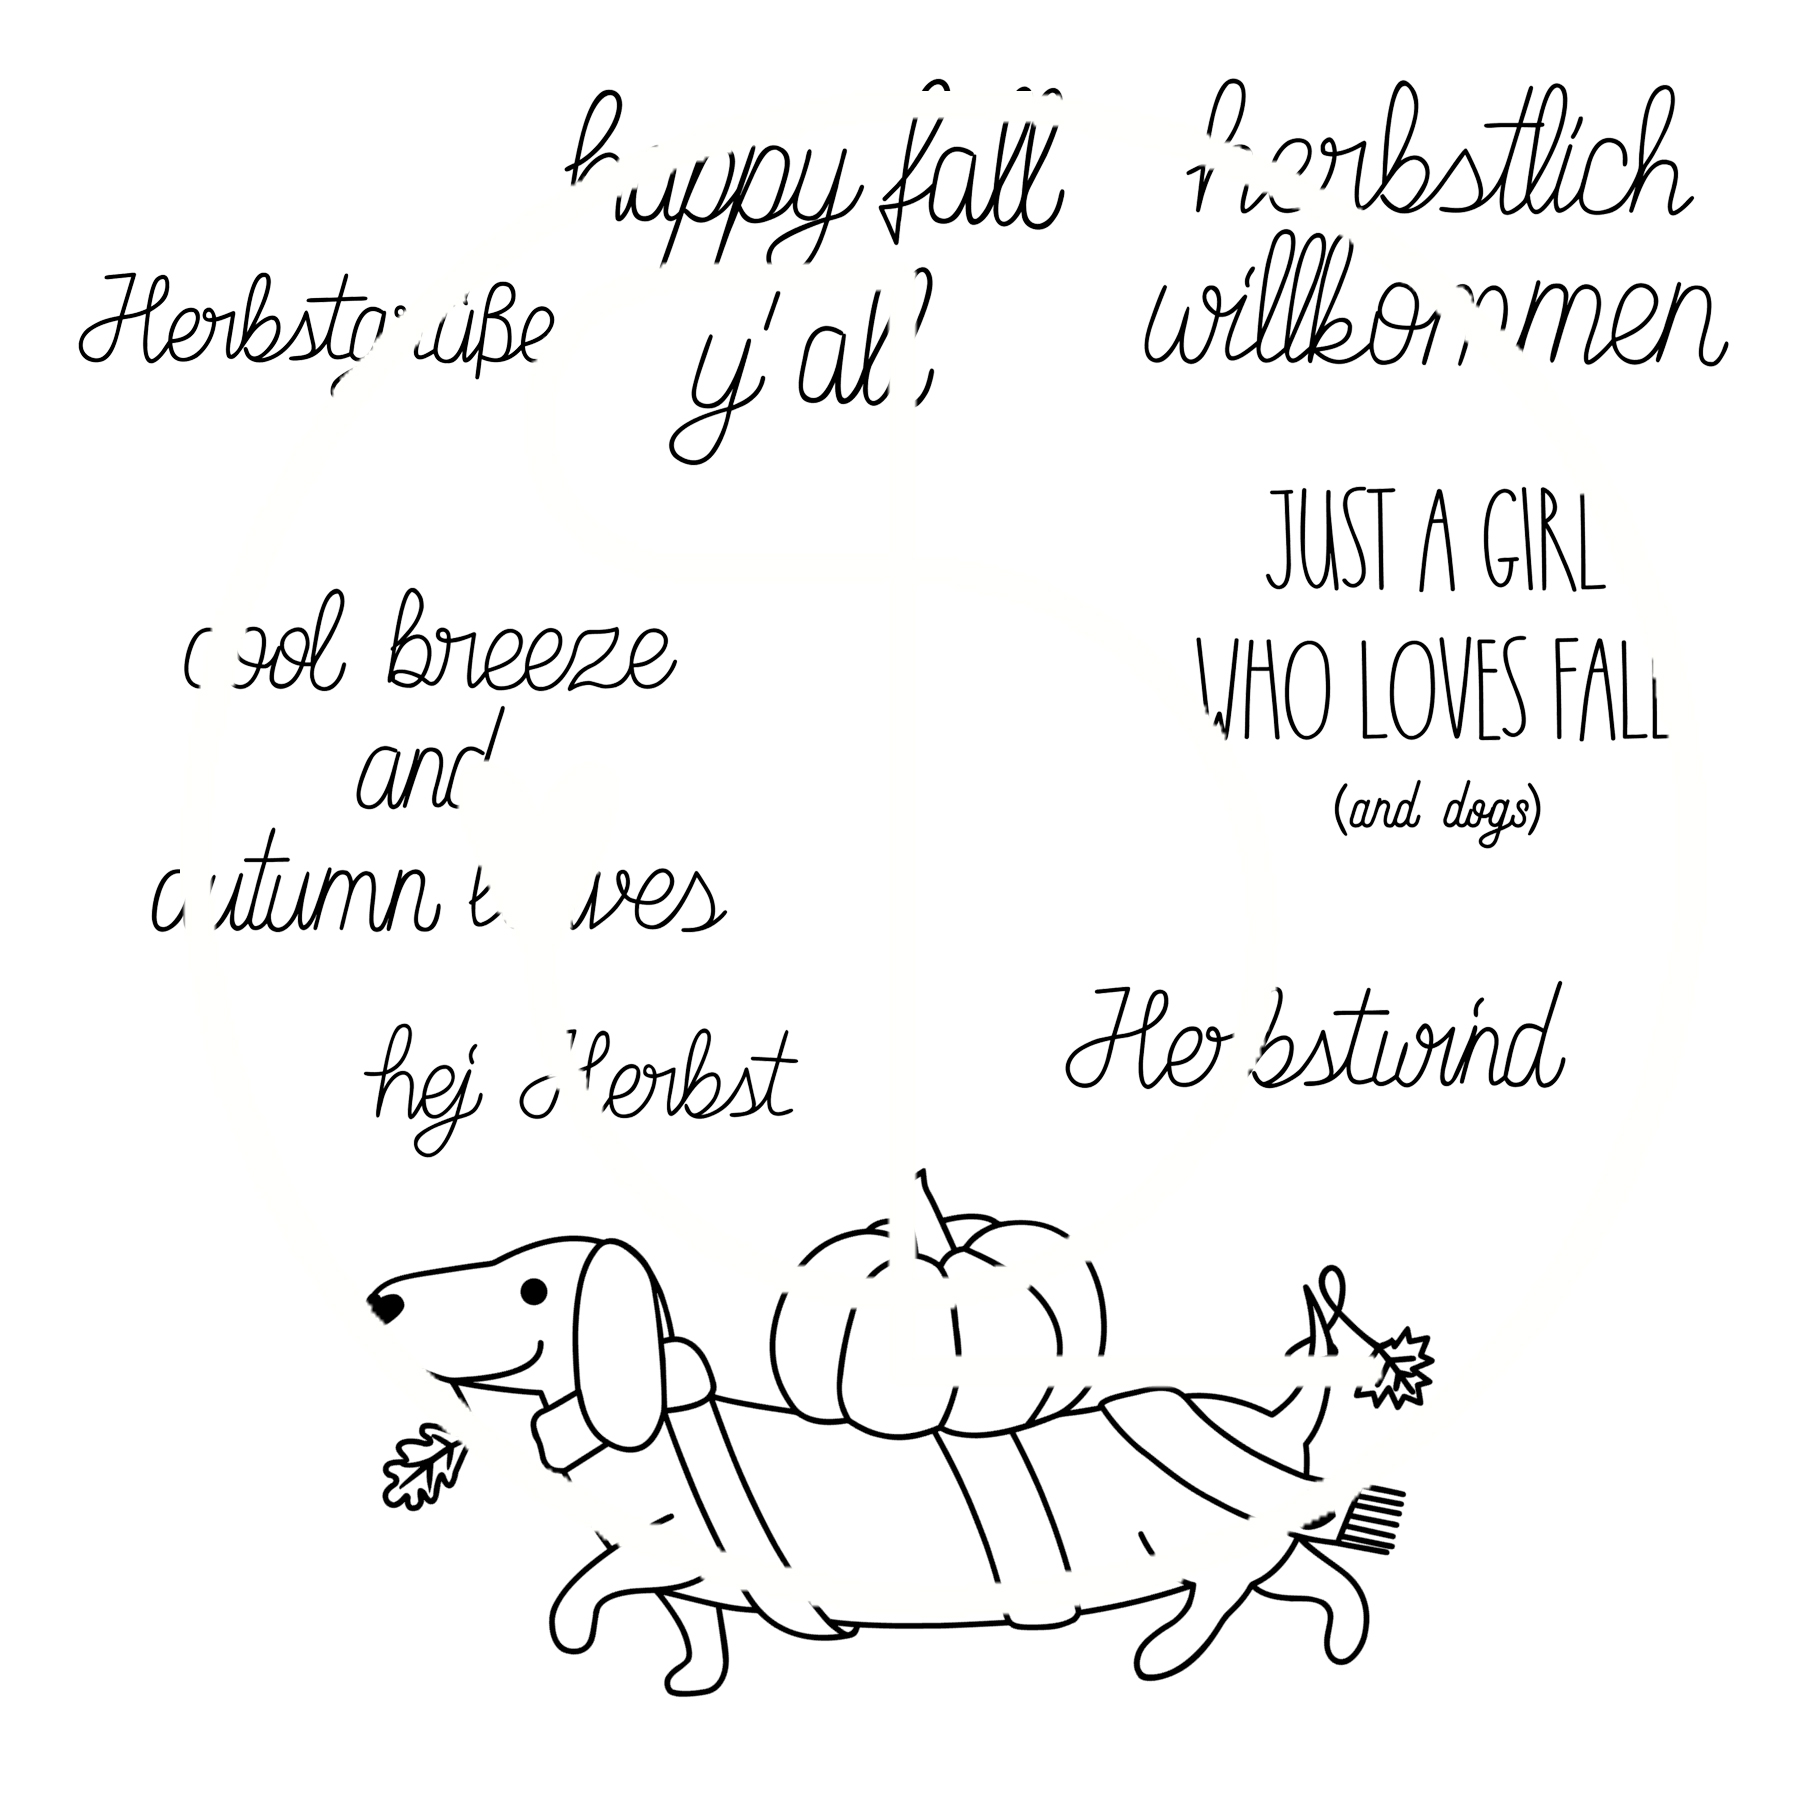 happy fall
y'all
herbstlich
willkommen
Herbstgrüße
JUST A GIRL
WHO LOVES FALL
(and dogs)
cool breeze
and
autumn leaves
hej Herbst
Herbstwind